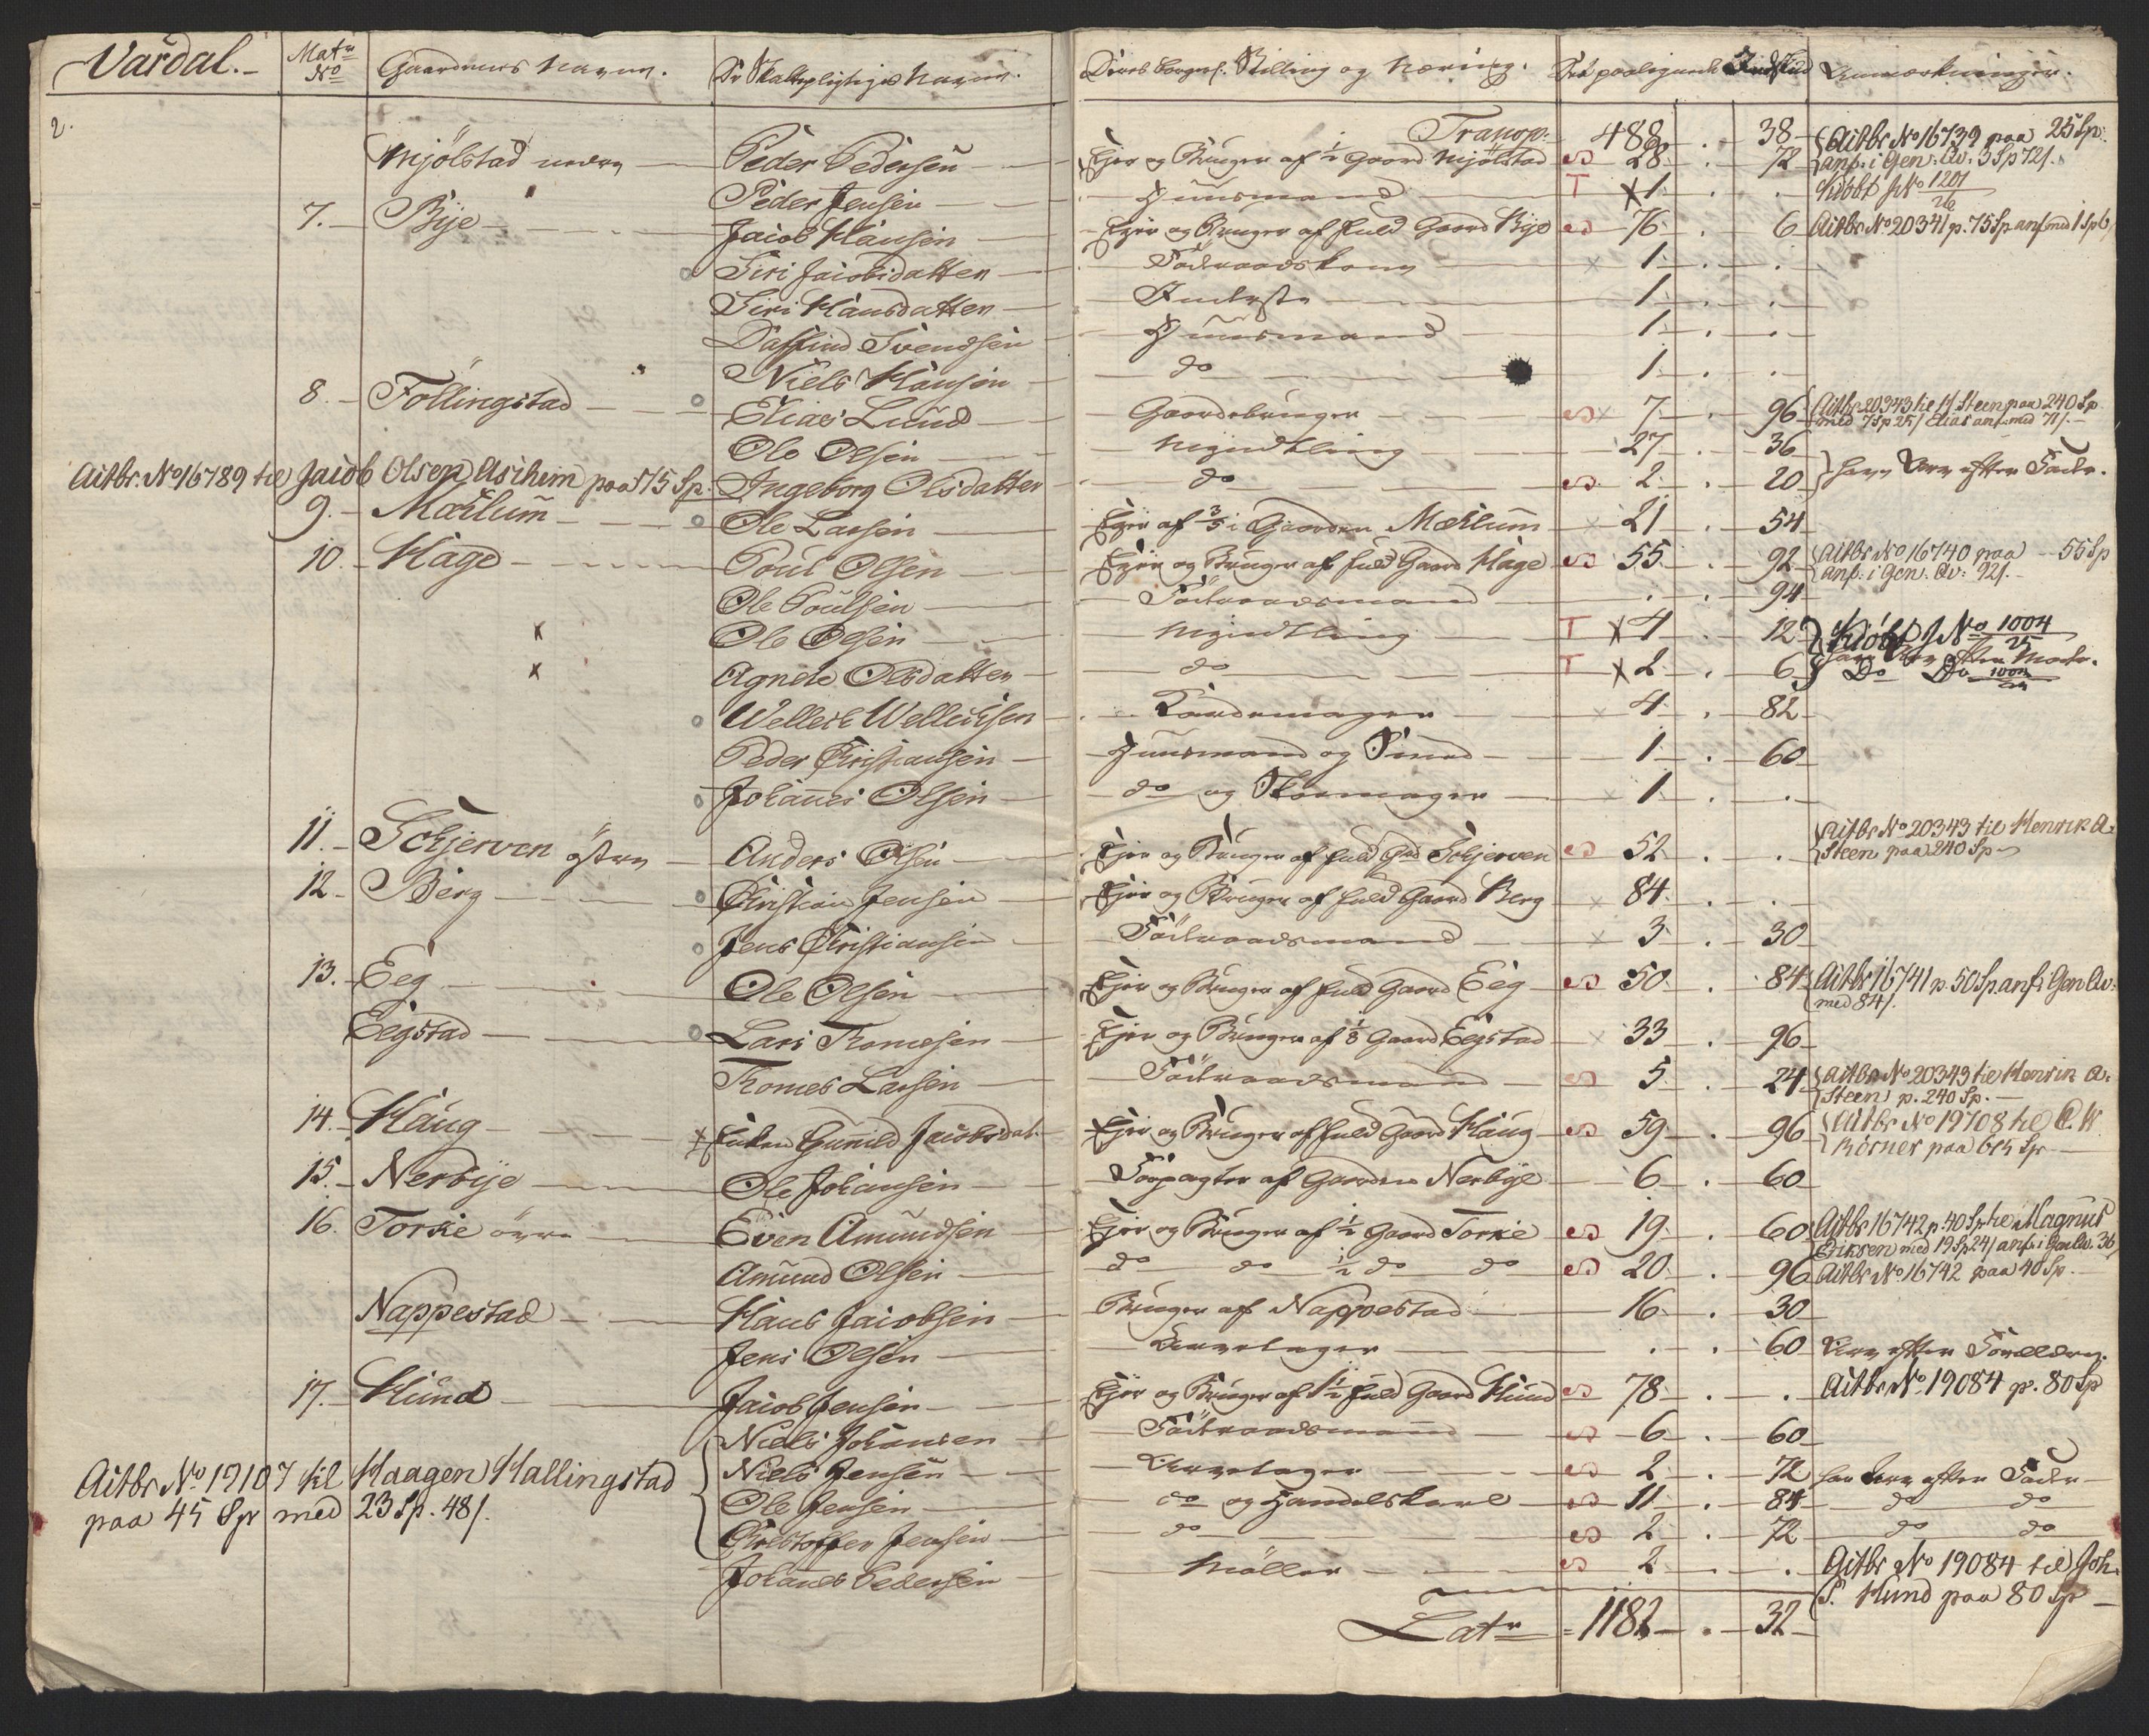 Vardal. Matr No Gaardenes Navne. De Skattepligtiges Navne. Deres borgerl. Stilling og Næring. Det paaligende Indskud Anmærkninger.
2.
Transp: 488 . 38
Mjölstad nedre Peder Pedersen Ejer og Bruger af 1/2 Gaard Mjölstad 28 . 72 Aitbr No 16739 paa 25 Sp: anf: i Gen: Qv: 3 Sp 72/.
Peder Jensen Huusmand T x 1 . . Kiöbt No 1201/26
7. Bye Jacob Hansen Ejer og Bruger af fuld Gaard Bye 76 . 6 Aitbr No 20341 p. 75 Sp anf med 1 Sp 6/
Siri Jacobsdatter Föderaadskone x 1 . .
Siri Hansdatter Inderste 1 . .
Daffind Svendsen Huusmand 1 . .
Niels Hansen do 1 . .
8. Föllingstad Elias Lund Gaardbruger x 7 . 96 Aitbr 20343 til H Steen paa 240 Sp med 7 Sp 25/ Elias anf. med 71/.
Ole Olsen Myndtling 27 . 36
Aitbr. No 16789 til Jacob Olsen Aschem paa 75 Sp. Ingeborg Olsdatter do 2 . 20 have Arv efter Fader.
9. Mælum Ole Larsen Ejer af 3/5 i Gaarden Mælum x 21 . 54
10. Hage Poul Olsen Ejer og Bruger af fuld Gaard Hage 55 . 92 Aitbr No 16740 paa 55 Sp anf: i Gen: Qv: 92/.
Ole Poulsen Föderaadsmand . . 94
x Ole Olsen Myndtling T x 4 . 12 Kiöbt No 1004/25
x Agnete Olsdatter do T x 2 . 6 have Arv efter Moder. Do Do 1004
Welleck Wellecksen Kardemager x 4 . 82
Peder Christiansen Huusmand og Smed 1 . 60
Johannes Olsen do og Skoemager x 1 . .
11. Schjerven östre Anders Olsen Ejer og Bruger af fuld Grd Schjerven 52 . . Aitbr No 20343 til Henrik A. Steen paa 240 Sp
12. Berg Christian Jensen Ejer og Bruger af fuld Gaard Berg x 84 . .
Jens Christiansen Föderaadsmand x 3 . 30
13. Eeg Ole Olsen Ejer og Bruger af fuld Gaard Eeg 50 . 84 Aitbr 16741 p. 50 Sp. anf i Gen Qv: med 84/.
Eegstad Lars Thomesen Ejer og Bruger af 1/3 Gaard Eegstad x 33 . 96
Thomes Larsen Föderaadsmand 5 . 24 Aitbr No 20343 til Henrik A. Steen p. 240 Sp.
14. Haug x Enken Gunild Jacobsdat. Ejer og Bruger af fuld Gaard Haug 59 . 96 Aitbr No 19708 til C. W. Körner paa
15. Nerbye Ole Johansen Forpagter af Gaarden Nerbye 6 . 60
16. Torke övre Even Amundsen Ejer og Bruger af 1/2 Gaard Torke 19 . 60 Aitbr 16742 p. 40 Sp til Magnus Eriksen med 19 Sp 24/ anf: i Gen Qv. 36/
Amund Olsen do do 1/2 do do 20 . 96 Aitbr No 16742 paa 40 Sp.
Nappestad Hans Jacobsen Bruger af Nappestad 16 . 30
Jens Olsen Arvetager . . 60 Arv efter Forældre.
17. Hund Jacob Jensen Ejer og Bruger af 1 1/2 fuld Gaard Hund 78 . . Aitbr No. 19084 p. 80 Sp
Niels Johansen Föderaadsmand 6 . 60
Aitbr No. 19107 til Haagen Hallingstad paa 45 Spr med 23 Sp. 48/. Niels Jensen Arvetager 2 . 72 har Arv efter Fader
Ole Jensen do og Handelskarl 11 . 84 do do
Christoffer Jensen do 2 . 72 do do
Johanes Pedersen Möller 2 . . Aitbr No 19084 til Joh. P. Hund paa 80 Sp
Latr 1182 . 32